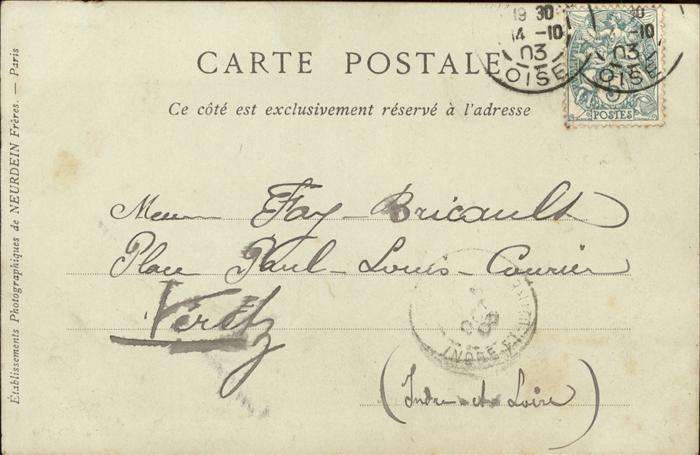 19 30
14-10
03
OISE
30
-10
03
OISE
5
POSTES
CARTE POSTALE
Ce côté est exclusivement réservé à l'adresse
Fay-Bricault
Place Paul-Louis-Courier
Véretz
(Indre-et-Loire)
OCT
03
INDRE-ET-LOIRE
Établissements Photographiques de NEURDEIN Frères. — Paris